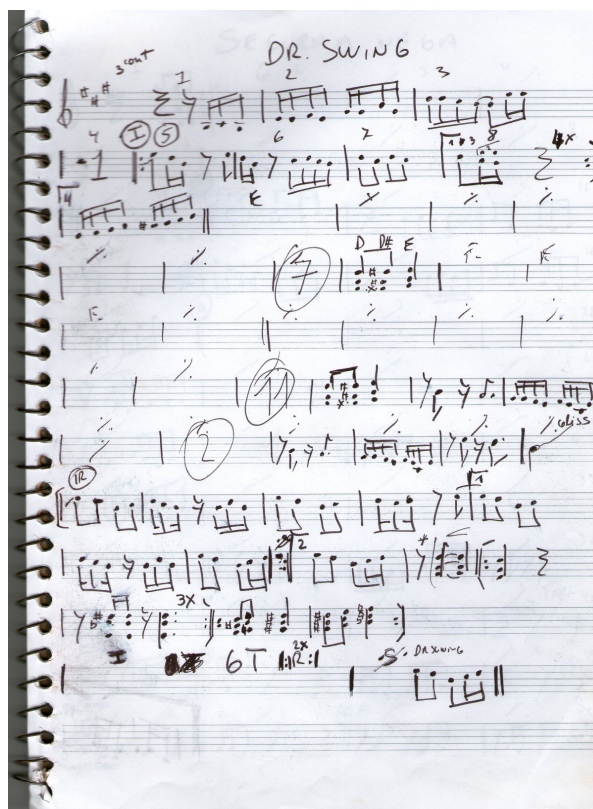 DR. SWING
3 cont I 2 3
4 I 5 6 7 1 2 3 8 4x
4 E
7 D D# E F- E
F-
11
2 gliss
R 1
2
3X
I 6T R 2x S DR SWING